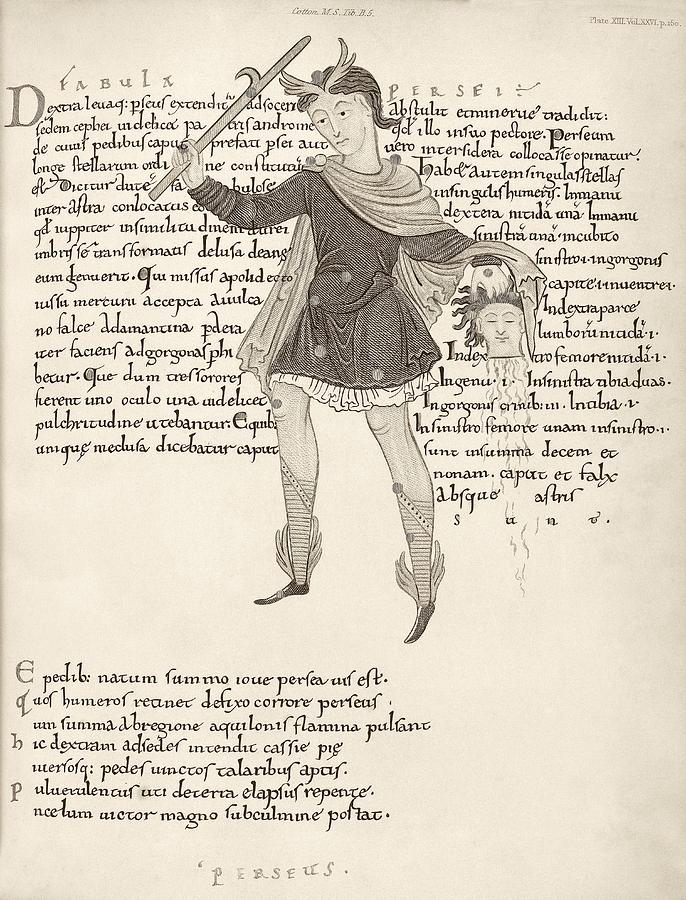 Cotton M.S. Tib. B.5.
Plate XIII. Vol. XXVI. p. 160.
FABULA PERSEI
Dextra leuaq: pseus extendit ad soceri
sedem cephei uidelicet patris andromede
de cuius pedibus caput prefati psei aut
longe stellarum ordine constitutu
est. Dicitur fabulose
inter astra conlocatus
qd iuppiter insimilitudinem aurei
imbris se transformatis delusa deang
eum genuerit. Qui missus apolidecto
iussu mercurii accepta auulca
no falce adamantina pdeia
iter faciens ad gorgonas phi
betur. Que dum tres sorores
fierent uno oculo una uidelicet
pulchritudine utebantur. Equib:
unique medusa dicebatur caput
Abstulit et minerue tradidit:
qd illo insuo pectore. Perseum
uero inter sidera collocasse opinatur.
Habet autem singulas stellas
insingulis humeris. Inmanu
dextera nitida una. Inmanu
sinistra una. incubito
sinistro .i. ingorgonis
capite .i. inuentre .i.
Indextra parce
lumborum nitida .i.
Indextro femore nitida .i.
Ingenu .i. Insinistra tibia duas.
Ingorgonis crinib: III. Intibia .i.
Insinistro femore unam insinistro .i.
sunt insumma decem et
nonam. caput et falx
Absque astris
sunt.
E pedib: natum summo ioue persea uis est.
quos humeros retinet defixo corrore perseus
um summa Abregione aquilonis flamina pulsant
hic dextram ad sedes intendit cassiepie
iuersosq: pedes uinctos talaribus aptis.
Puluerulentus uti deterra elapsus repente.
ncelum uictor magno subculmine portat.
PERSEUS.